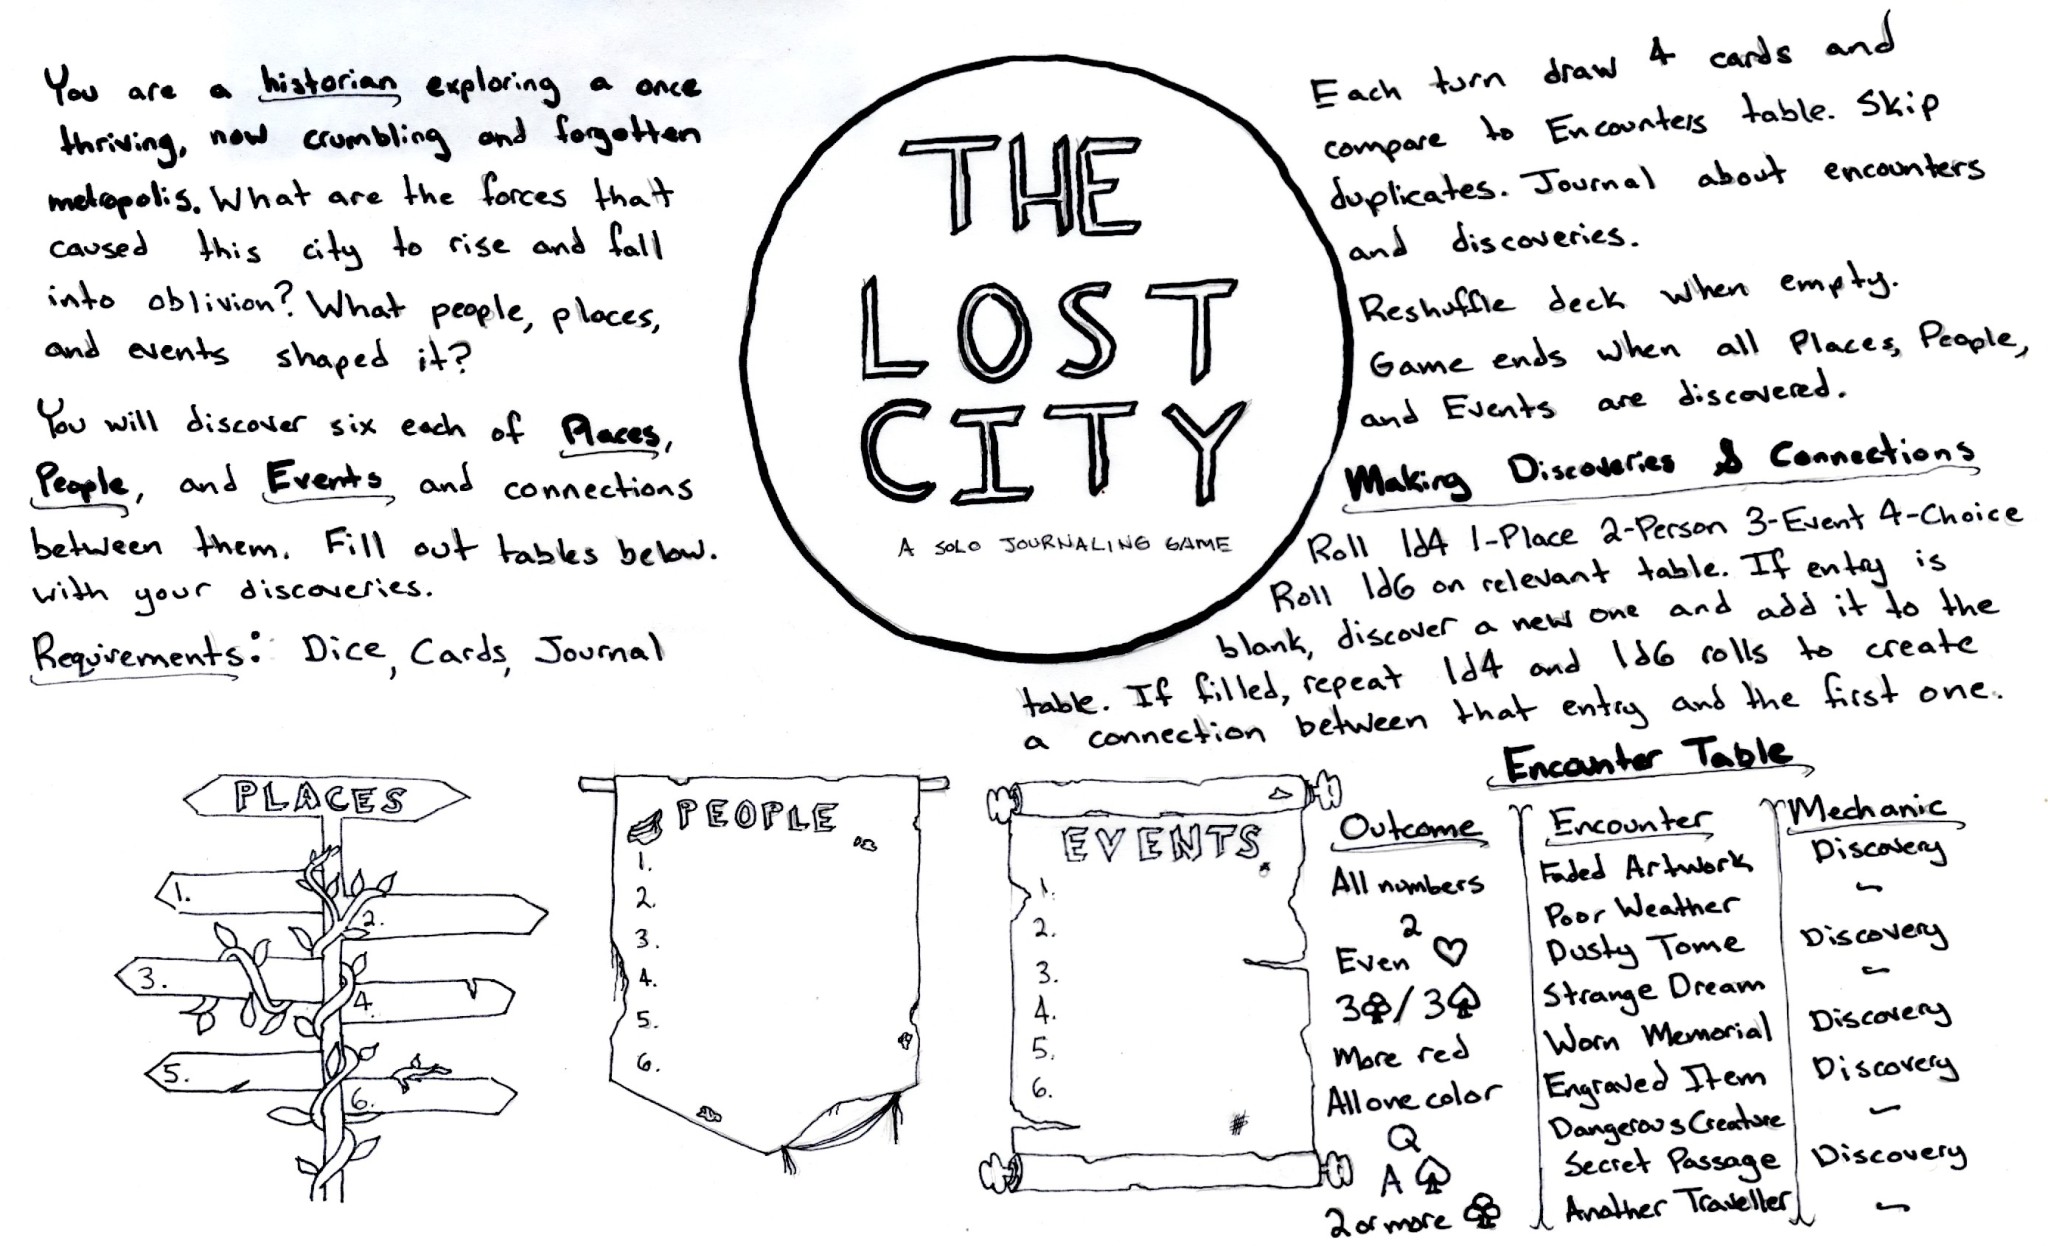 You are a historian exploring a once
thriving, now crumbling and forgotten
metropolis. What are the forces that
caused this city to rise and fall
into oblivion? What people, places,
and events shaped it?
You will discover six each of Places,
People, and Events and connections
between them. Fill out tables below.
with your discoveries.
Requirements: Dice, Cards, Journal
THE
LOST
CITY
A SOLO JOURNALING GAME
Each turn draw 4 cards and
compare to Encounters table. Skip
duplicates. Journal about encounters
and discoveries.
Reshuffle deck when empty.
Game ends when all Places, People,
and Events are discovered.
Making Discoveries & Connections
Roll 1d4 1-Place 2-Person 3-Event 4-Choice
Roll 1d6 on relevant table. If entry is
blank, discover a new one and add it to the
table. If filled, repeat 1d4 and 1d6 rolls to create
a connection between that entry and the first one.
PLACES
1.
2.
3.
4.
5.
6.
PEOPLE
1.
2.
3.
4.
5.
6.
EVENTS
1.
2.
3.
4.
5.
6.
Encounter Table
Outcome Encounter Mechanic
All numbers Faded Artwork Discovery
2 Poor Weather -
Even ♡ Dusty Tome Discovery
3♣/3♠ Strange Dream -
More red Worn Memorial Discovery
All one color Engraved Item Discovery
Q Dangerous Creature -
A ♠ Secret Passage Discovery
2 or more ♣ Another Traveller -